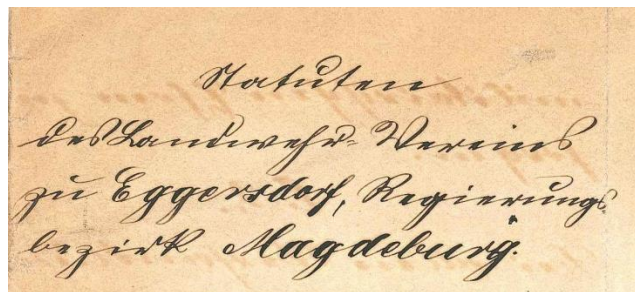 Statuten
des Landwehr-Vereins
zu Eggersdorf, Regierungs-
bezirk Magdeburg.